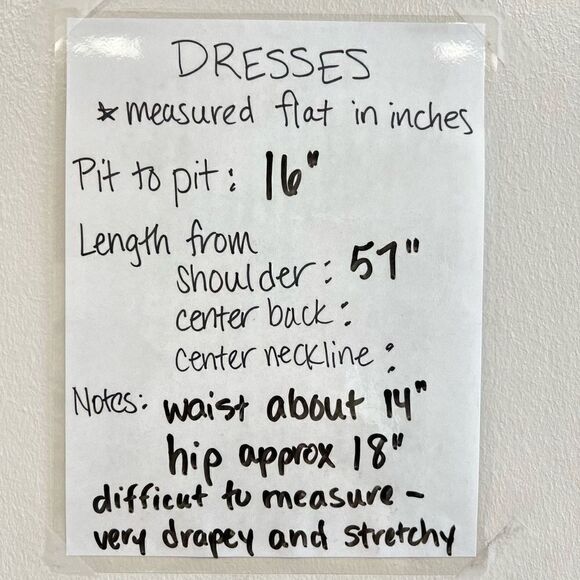 DRESSES
* measured flat in inches
Pit to pit: 16"
Length from
shoulder: 57"
center back:
center neckline:
Notes: waist about 14"
hip approx 18"
difficut to measure -
very drapey and stretchy